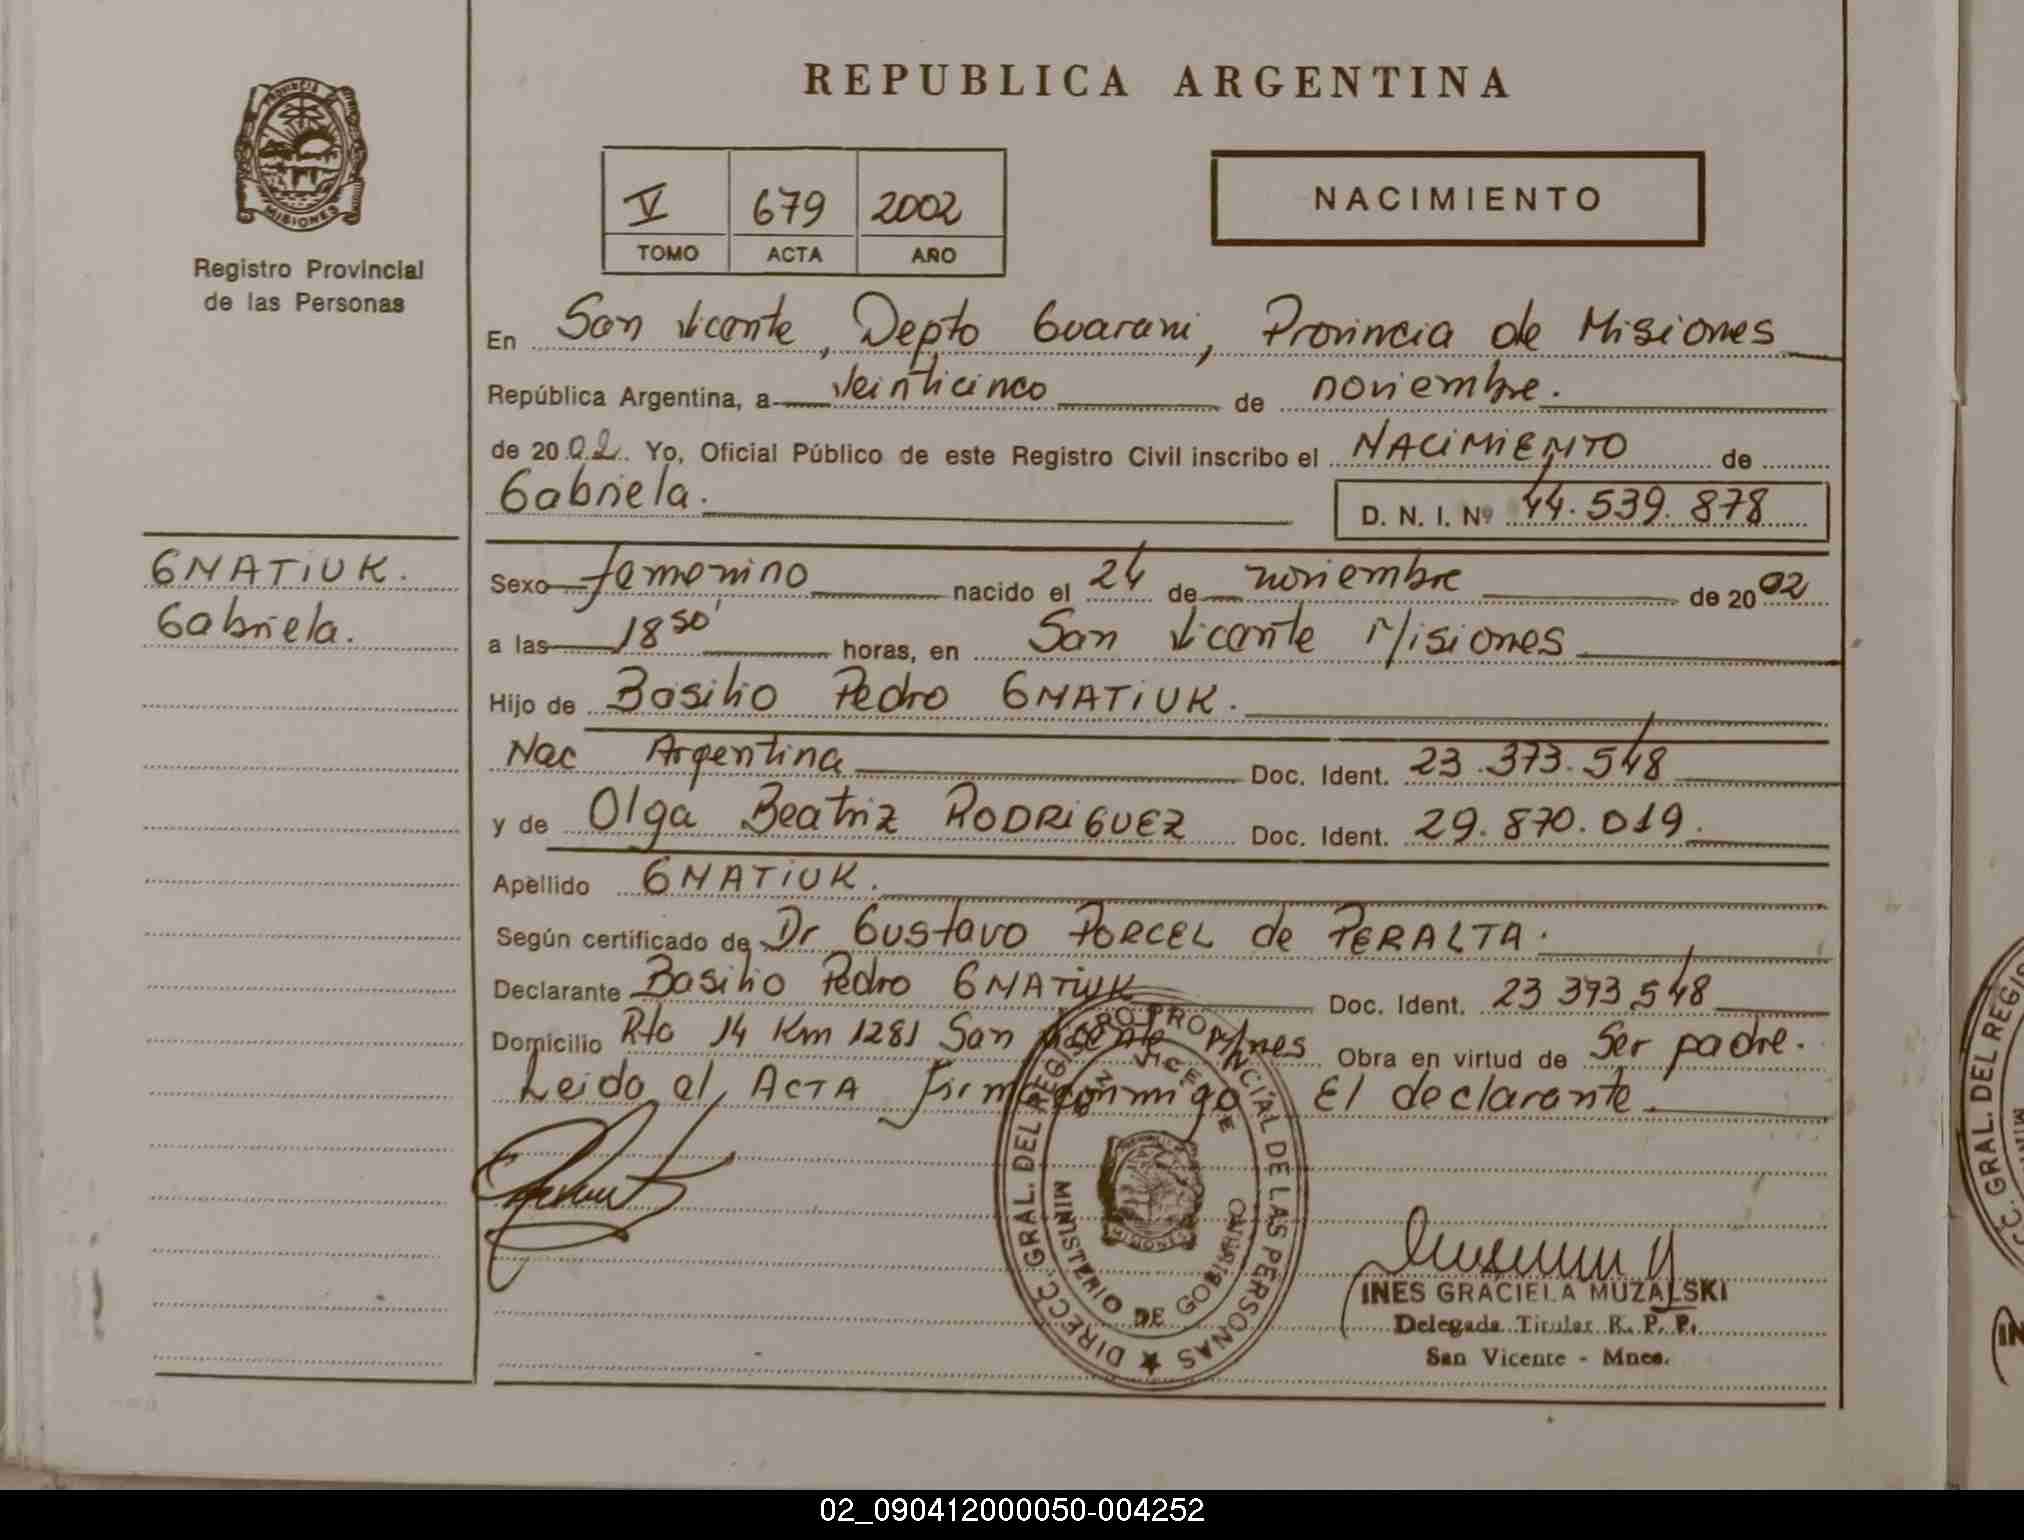 REPUBLICA ARGENTINA
PROVINCIA
MISIONES
Registro Provincial
de las Personas
V 679 2002
TOMO ACTA AÑO
NACIMIENTO
En San Vicente, Depto Guarani, Provincia de Misiones
República Argentina, a veinticinco de noviembre.
de 2002. Yo, Oficial Público de este Registro Civil inscribo el NACIMIENTO de
Gabriela.
D. N. I. Nº 44.539.878
GNATIUK.
Gabriela.
Sexo femenino nacido el 24 de noviembre de 2002
a las 18 50' horas, en San Vicente Misiones
Hijo de Basilio Pedro GNATIUK.
Nac Argentina Doc. Ident. 23.373.548
y de Olga Beatriz RODRIGUEZ Doc. Ident. 29.870.019.
Apellido GNATIUK.
Según certificado de Dr Gustavo PORCEL de PERALTA.
Declarante Basilio Pedro GNATIUK Doc. Ident. 23 393 548
Domicilio Rta 14 Km 1281 San Vicente Mnes Obra en virtud de Ser padre.
Leido el ACTA firma conmigo El declarante.
DIRECC. GRAL. DEL REGISTRO PROVINCIAL DE LAS PERSONAS
SAN VICENTE
MISIONES
MINISTERIO DE GOBIERNO
INES GRACIELA MUZALSKI
Delegada Titular R. P. P.
San Vicente - Mnes.
C. GRAL. DEL REGIS
MIN
IN
02_090412000050-004252